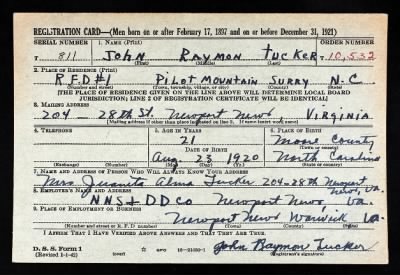 REGISTRATION CARD—(Men born on or after February 17, 1897 and on or before December 31, 1921)
SERIAL NUMBER 1. NAME (Print) ORDER NUMBER
T 811 John Raymon Tucker T 10,532
(First) (Middle) (Last)
2. PLACE OF RESIDENCE (Print)
R.F.D #1 Pilot Mountain Surry N.C
(Number and street) (Town, township, village, or city) (County) (State)
[THE PLACE OF RESIDENCE GIVEN ON THE LINE ABOVE WILL DETERMINE LOCAL BOARD
JURISDICTION; LINE 2 OF REGISTRATION CERTIFICATE WILL BE IDENTICAL]
3. MAILING ADDRESS
204 28th St. Newport News Virginia
[Mailing address if other than place indicated on line 2. If same insert word same]
4. TELEPHONE 5. AGE IN YEARS 6. PLACE OF BIRTH
21 Moore County
DATE OF BIRTH (Town or county)
Aug 23 1920 North Carolina
(Exchange) (Number) (Mo.) (Day) (Yr.) (State or country)
7. NAME AND ADDRESS OF PERSON WHO WILL ALWAYS KNOW YOUR ADDRESS
Mrs Juanita Alma Tucker 204-28th Newport
News, Va.
8. EMPLOYER'S NAME AND ADDRESS
NNS & DD Co Newport News, Va.
9. PLACE OF EMPLOYMENT OR BUSINESS
Newport News Warwick Va
(Number and street or R. F. D. number) (Town) (County) (State)
I AFFIRM THAT I HAVE VERIFIED ABOVE ANSWERS AND THAT THEY ARE TRUE.
D. S. S. Form 1
(Revised 1-1-42) (over) 16—21630-1 John Raymon Tucker
(Registrant's signature)